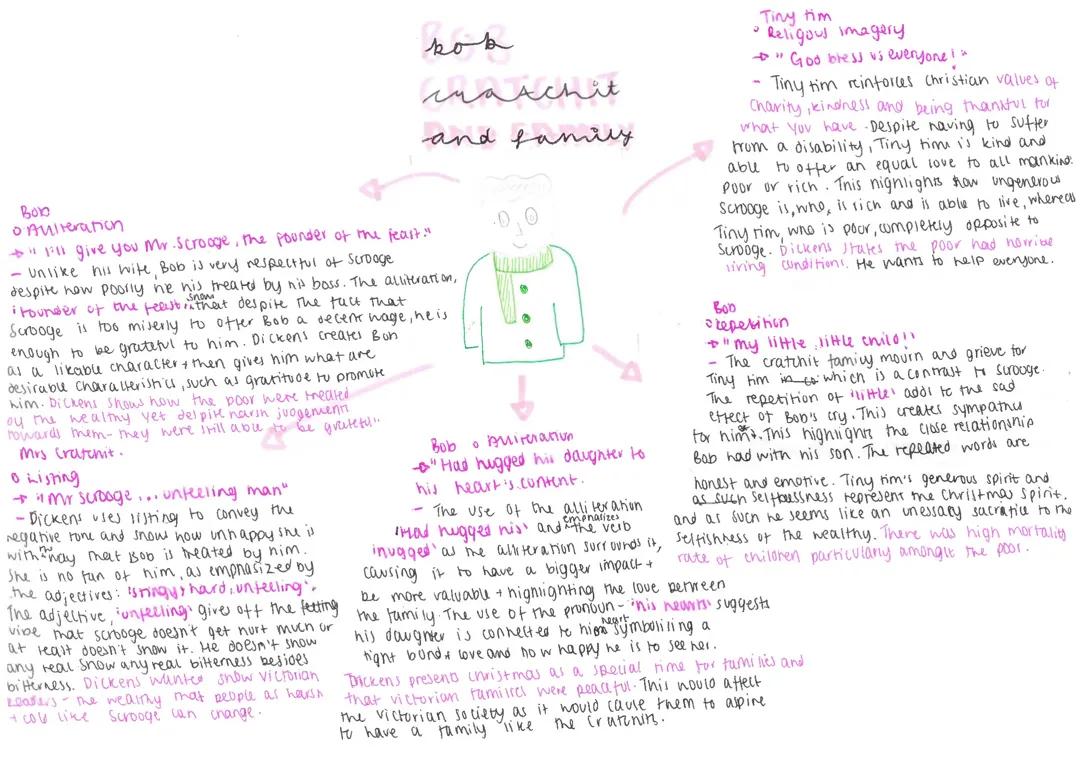 bob
cratchit
and family
Bob
Alliteration
"I'll give you Mr. Scrooge, the founder of the feast."
- Unlike his wife, Bob is very respectful of Scrooge
despite how poorly he his treated by his boss. The alliteration,
'founder of the feast', show that despite the fact that
Scrooge is too miserly to offer Bob a decent wage, he is
enough to be grateful to him. Dickens creates Bob
as a likable character + then gives him what are
desirable characteristics, such as gratitude to promote
him. Dickens show how the poor were treated
by the wealthy yet despite harsh judgement
towards them - they were still able to be grateful.
Mrs Cratchit.
Listing
"Mr Scrooge ... unfeeling man"
- Dickens uses listing to convey the
negative tone and show how unhappy she is
with the way that Bob is treated by him.
She is no fan of him, as emphasized by
the adjectives: 'stingy, hard, unfeeling'.
The adjective, 'unfeeling' gives off the
vibe that scrooge doesn't get hurt much or
at least doesn't show it. He doesn't show
any real show any real bitterness besides
bitterness. Dickens wanted show Victorian
readers - the wealthy that people as harsh
+ cold like Scrooge can change.
Bob Alliteration
"Had hugged his daughter to
his heart's content.
- The use of the alliteration
'Had hugged his' and emphasizes the verb
'hugged' as the alliteration surrounds it,
causing it to have a bigger impact +
be more valuable + highlighting the love between
the family. The use of the pronoun - 'his hearts' suggests
his daughter is connected to his heart symbolising a
tight bond + love and how happy he is to see her.
Dickens presents christmas as a special time for families and
that victorian families were peaceful. This would affect
the victorian society as it would cause them to aspire
to have a family like the Cratchits.
Tiny tim
Religous imagery
"God bless us everyone!"
- Tiny tim reinforces Christian values of
Charity, kindness and being thankful for
what you have. Despite having to suffer
from a disability, Tiny tim is kind and
able to offer an equal love to all mankind.
poor or rich. This highlights how ungenerous
Scrooge is, who, is rich and is able to live, whereas
Tiny tim, who is poor, completely opposite to
Scrooge. Dickens states the poor had horrible
living conditions. He wants to help everyone.
Bob
repetition
"my little, little child!"
- The cratchit family mourn and grieve for
Tiny Tim which is a contrast to Scrooge.
The repetition of 'little' adds to the sad
effect of Bob's cry. This creates sympathy
for him. This highlights the close relationship
Bob had with his son. The repeated words are
honest and emotive. Tiny tim's generous spirit and
as such selflessness represent the Christmas spirit,
and as such he seems like an unessary sacrifice to the
selfishness of the wealthy. There was high mortality
rate of children particularly amongst the poor.